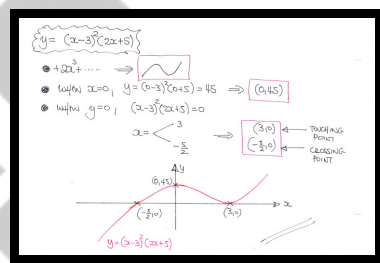 y = (x-3)²(2x+5)
+2x³+.... ⇒
when x=0, y = (0-3)²(0+5) = 45 ⇒ (0,45)
when y=0, (x-3)²(2x+5)=0
x = < 3 ⇒ (3,0) ← TOUCHING POINT
-5/2 (-5/2,0) ← CROSSING POINT
y
(0,45)
x
(-5/2,0) (3,0)
y=(x-3)²(2x+5)